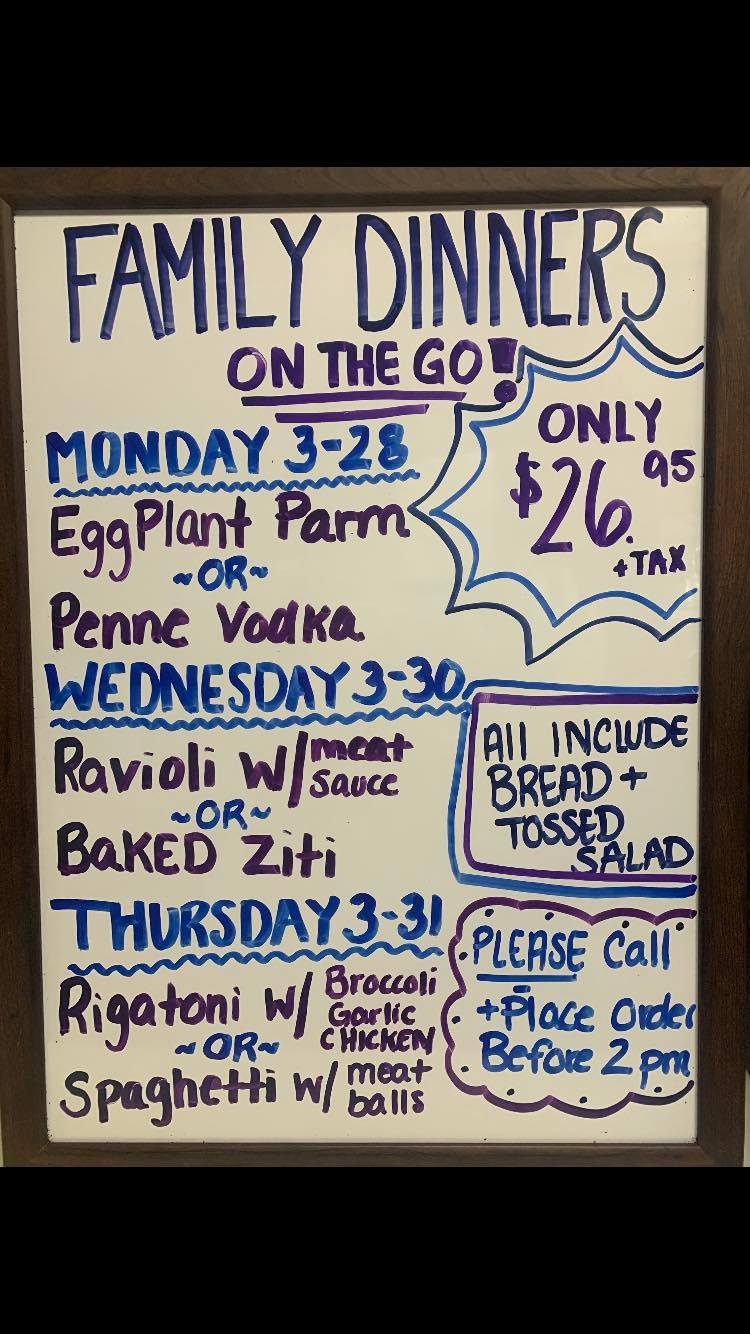 FAMILY DINNERS
ON THE GO!
ONLY
$26.95
+TAX
MONDAY 3-28
EggPlant Parm
~OR~
Penne Vodka
WEDNESDAY 3-30
Ravioli w/ meat
sauce
~OR~
BaKED Ziti
All INCLUDE
BREAD +
TOSSED
SALAD
THURSDAY 3-31
Rigatoni w/ Broccoli
Garlic
CHICKEN
~OR~
Spaghetti w/ meat
balls
PLEASE Call
+Place Order
Before 2 pm